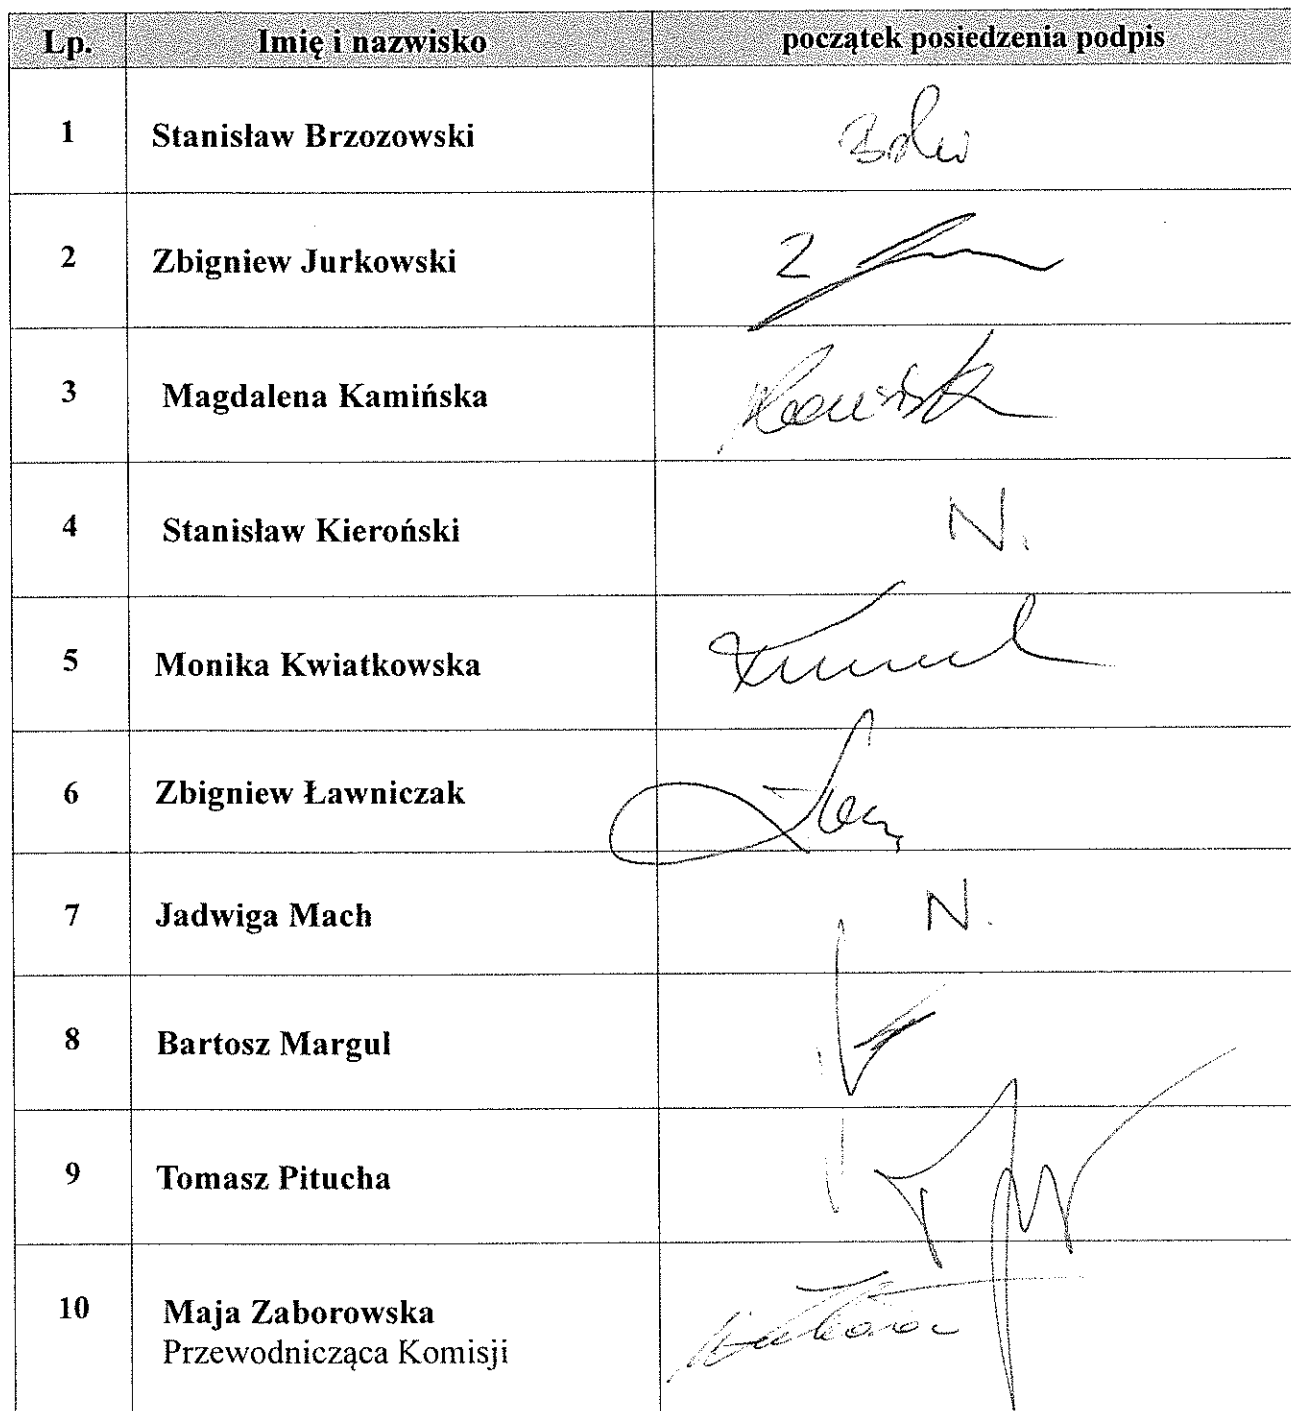 Lp. Imię i nazwisko początek posiedzenia podpis
1 Stanisław Brzozowski
2 Zbigniew Jurkowski
3 Magdalena Kamińska
4 Stanisław Kieroński N.
5 Monika Kwiatkowska
6 Zbigniew Ławniczak
7 Jadwiga Mach N.
8 Bartosz Margul
9 Tomasz Pitucha
10 Maja Zaborowska
Przewodnicząca Komisji